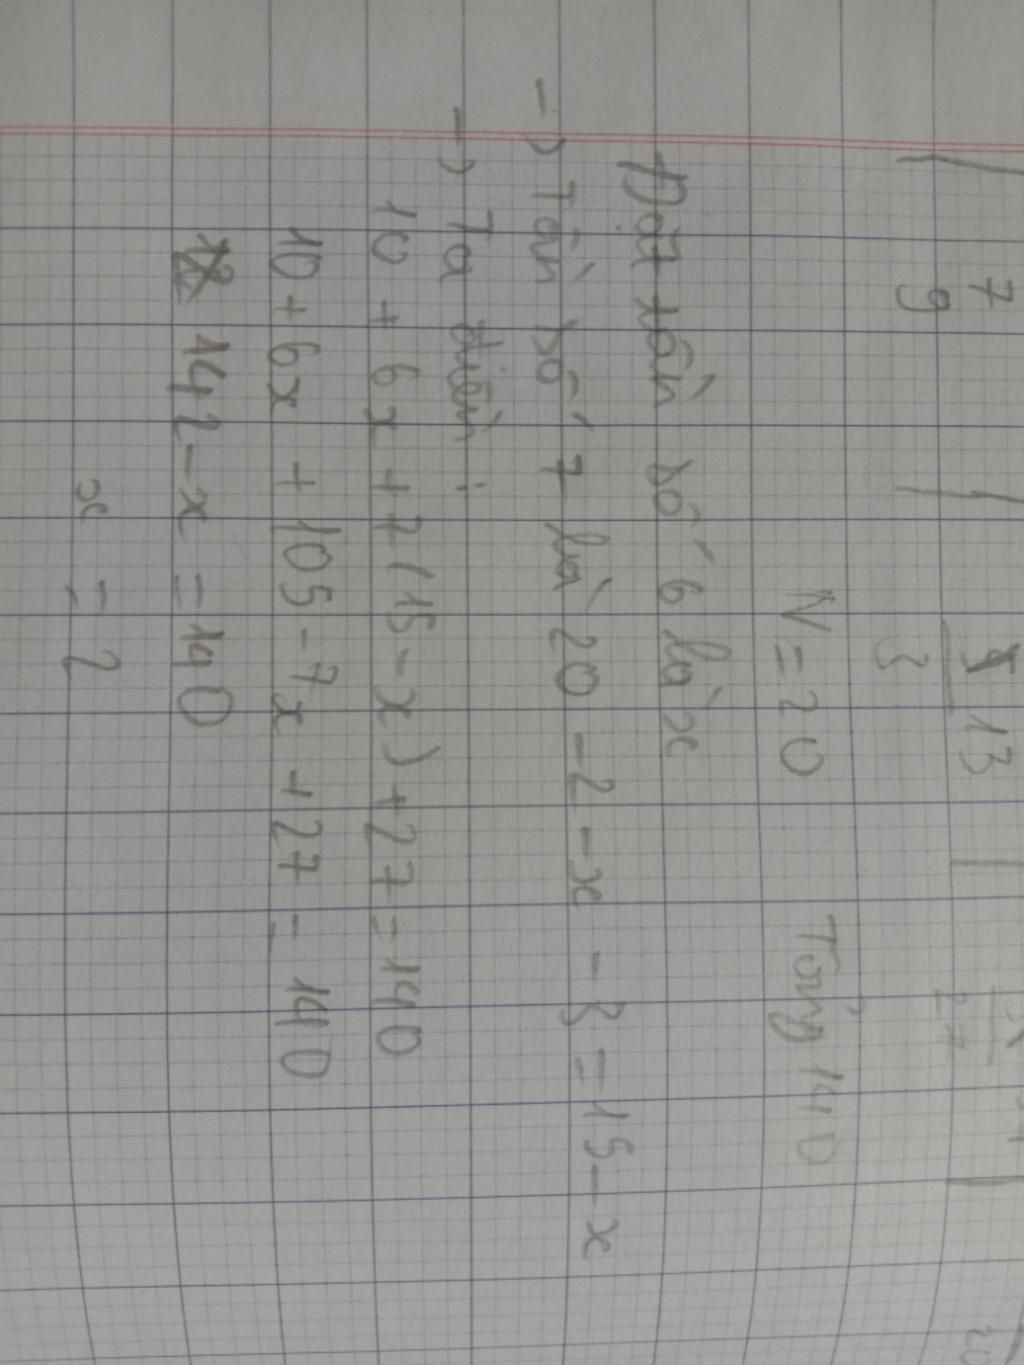 7 13
9 3 27
N = 20 Tổng 140
Đặt tần số 6 là x
-> Tần số 7 là 20 - 2 - x - 3 = 15 - x
-> Ta điền :
10 + 6x + 7 (15 - x) + 27 = 140
10 + 6x + 105 - 7x + 27 = 140
142 - x = 140
x = 2